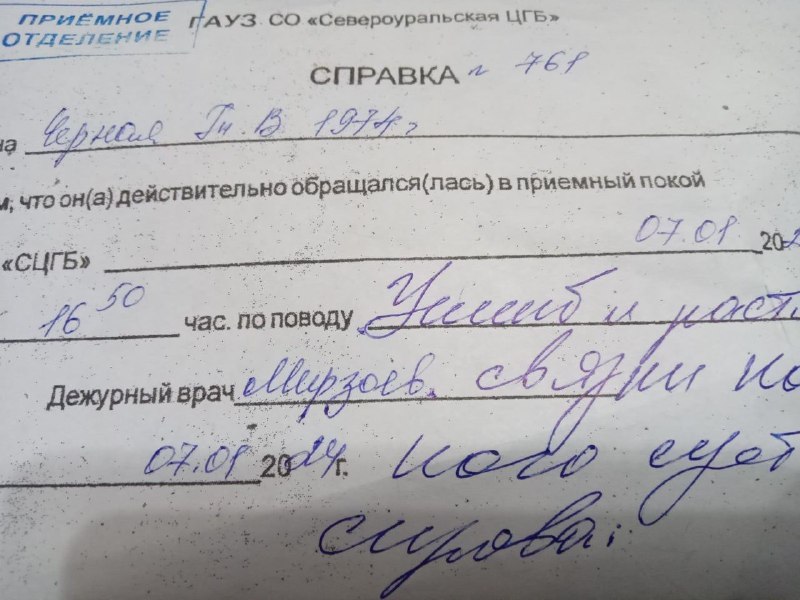 ПРИЁМНОЕ
ОТДЕЛЕНИЕ
ГАУЗ СО «Североуральская ЦГБ»
СПРАВКА № 761
на Черная Гн. В 1974г
м, что он(а) действительно обращался(лась) в приемный покой
«СЦГБ» 07.01 202
16 50 час. по поводу Ушиб и раст
Дежурный врач Мирзоев. связки
07.01 2024 г. ного суст
слева.